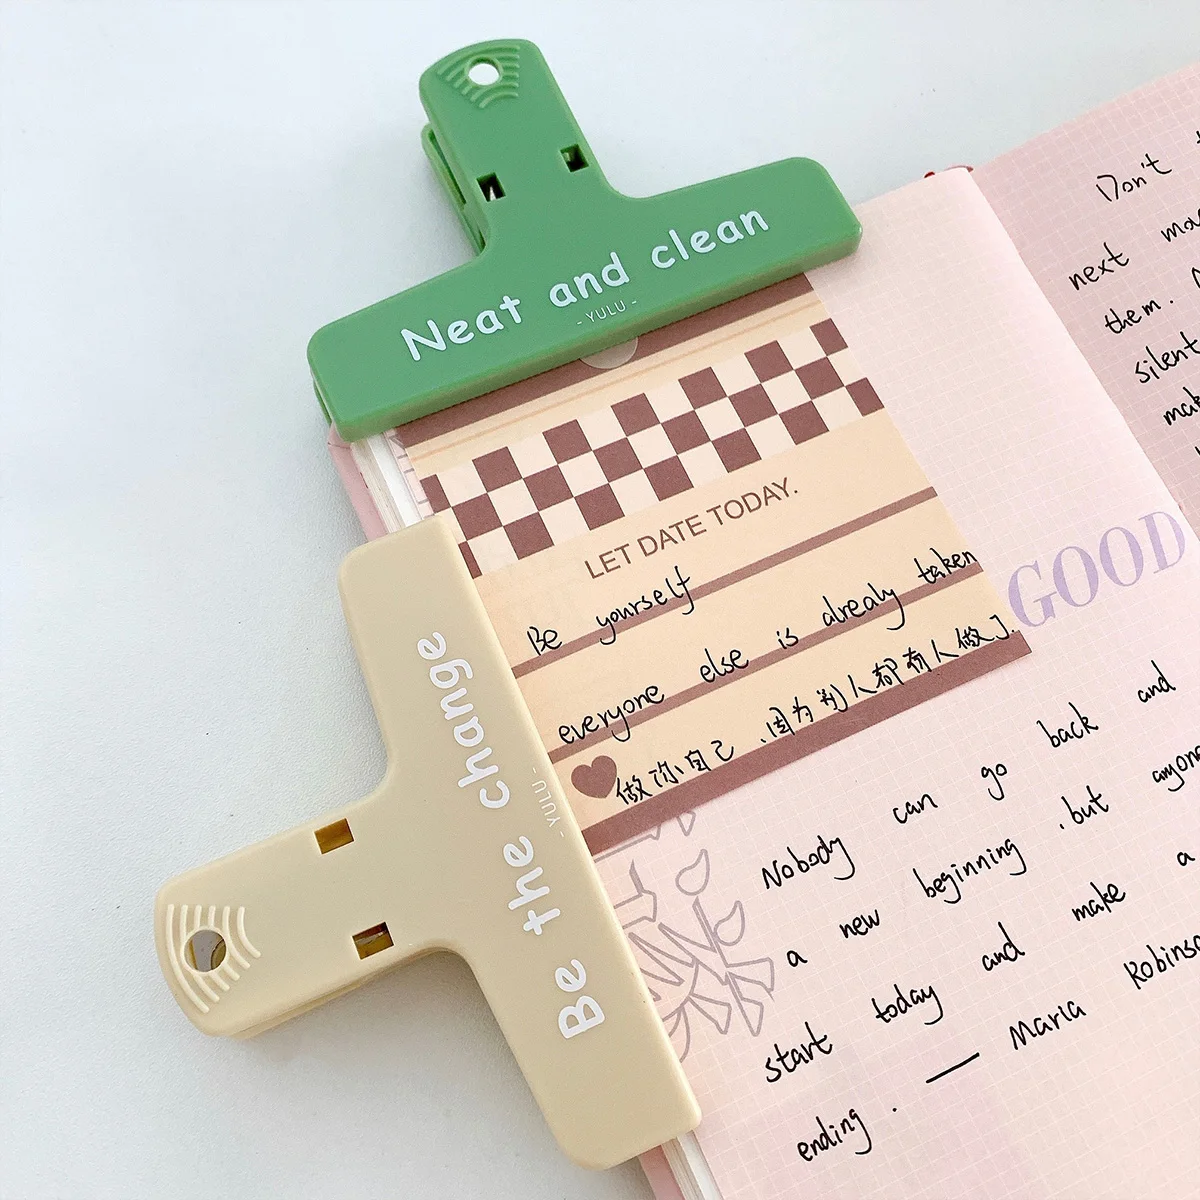 Neat and clean
- YULU -
Be the change
- YULU -
LET DATE TODAY.
Be yourself
everyone else is alrealy taken
做你自己,因为别人都有人做了.
GOOD
Nobody can go back and
a new beginning .but
start today and make a
ending .
— Maria
Don't
next
them.
silent